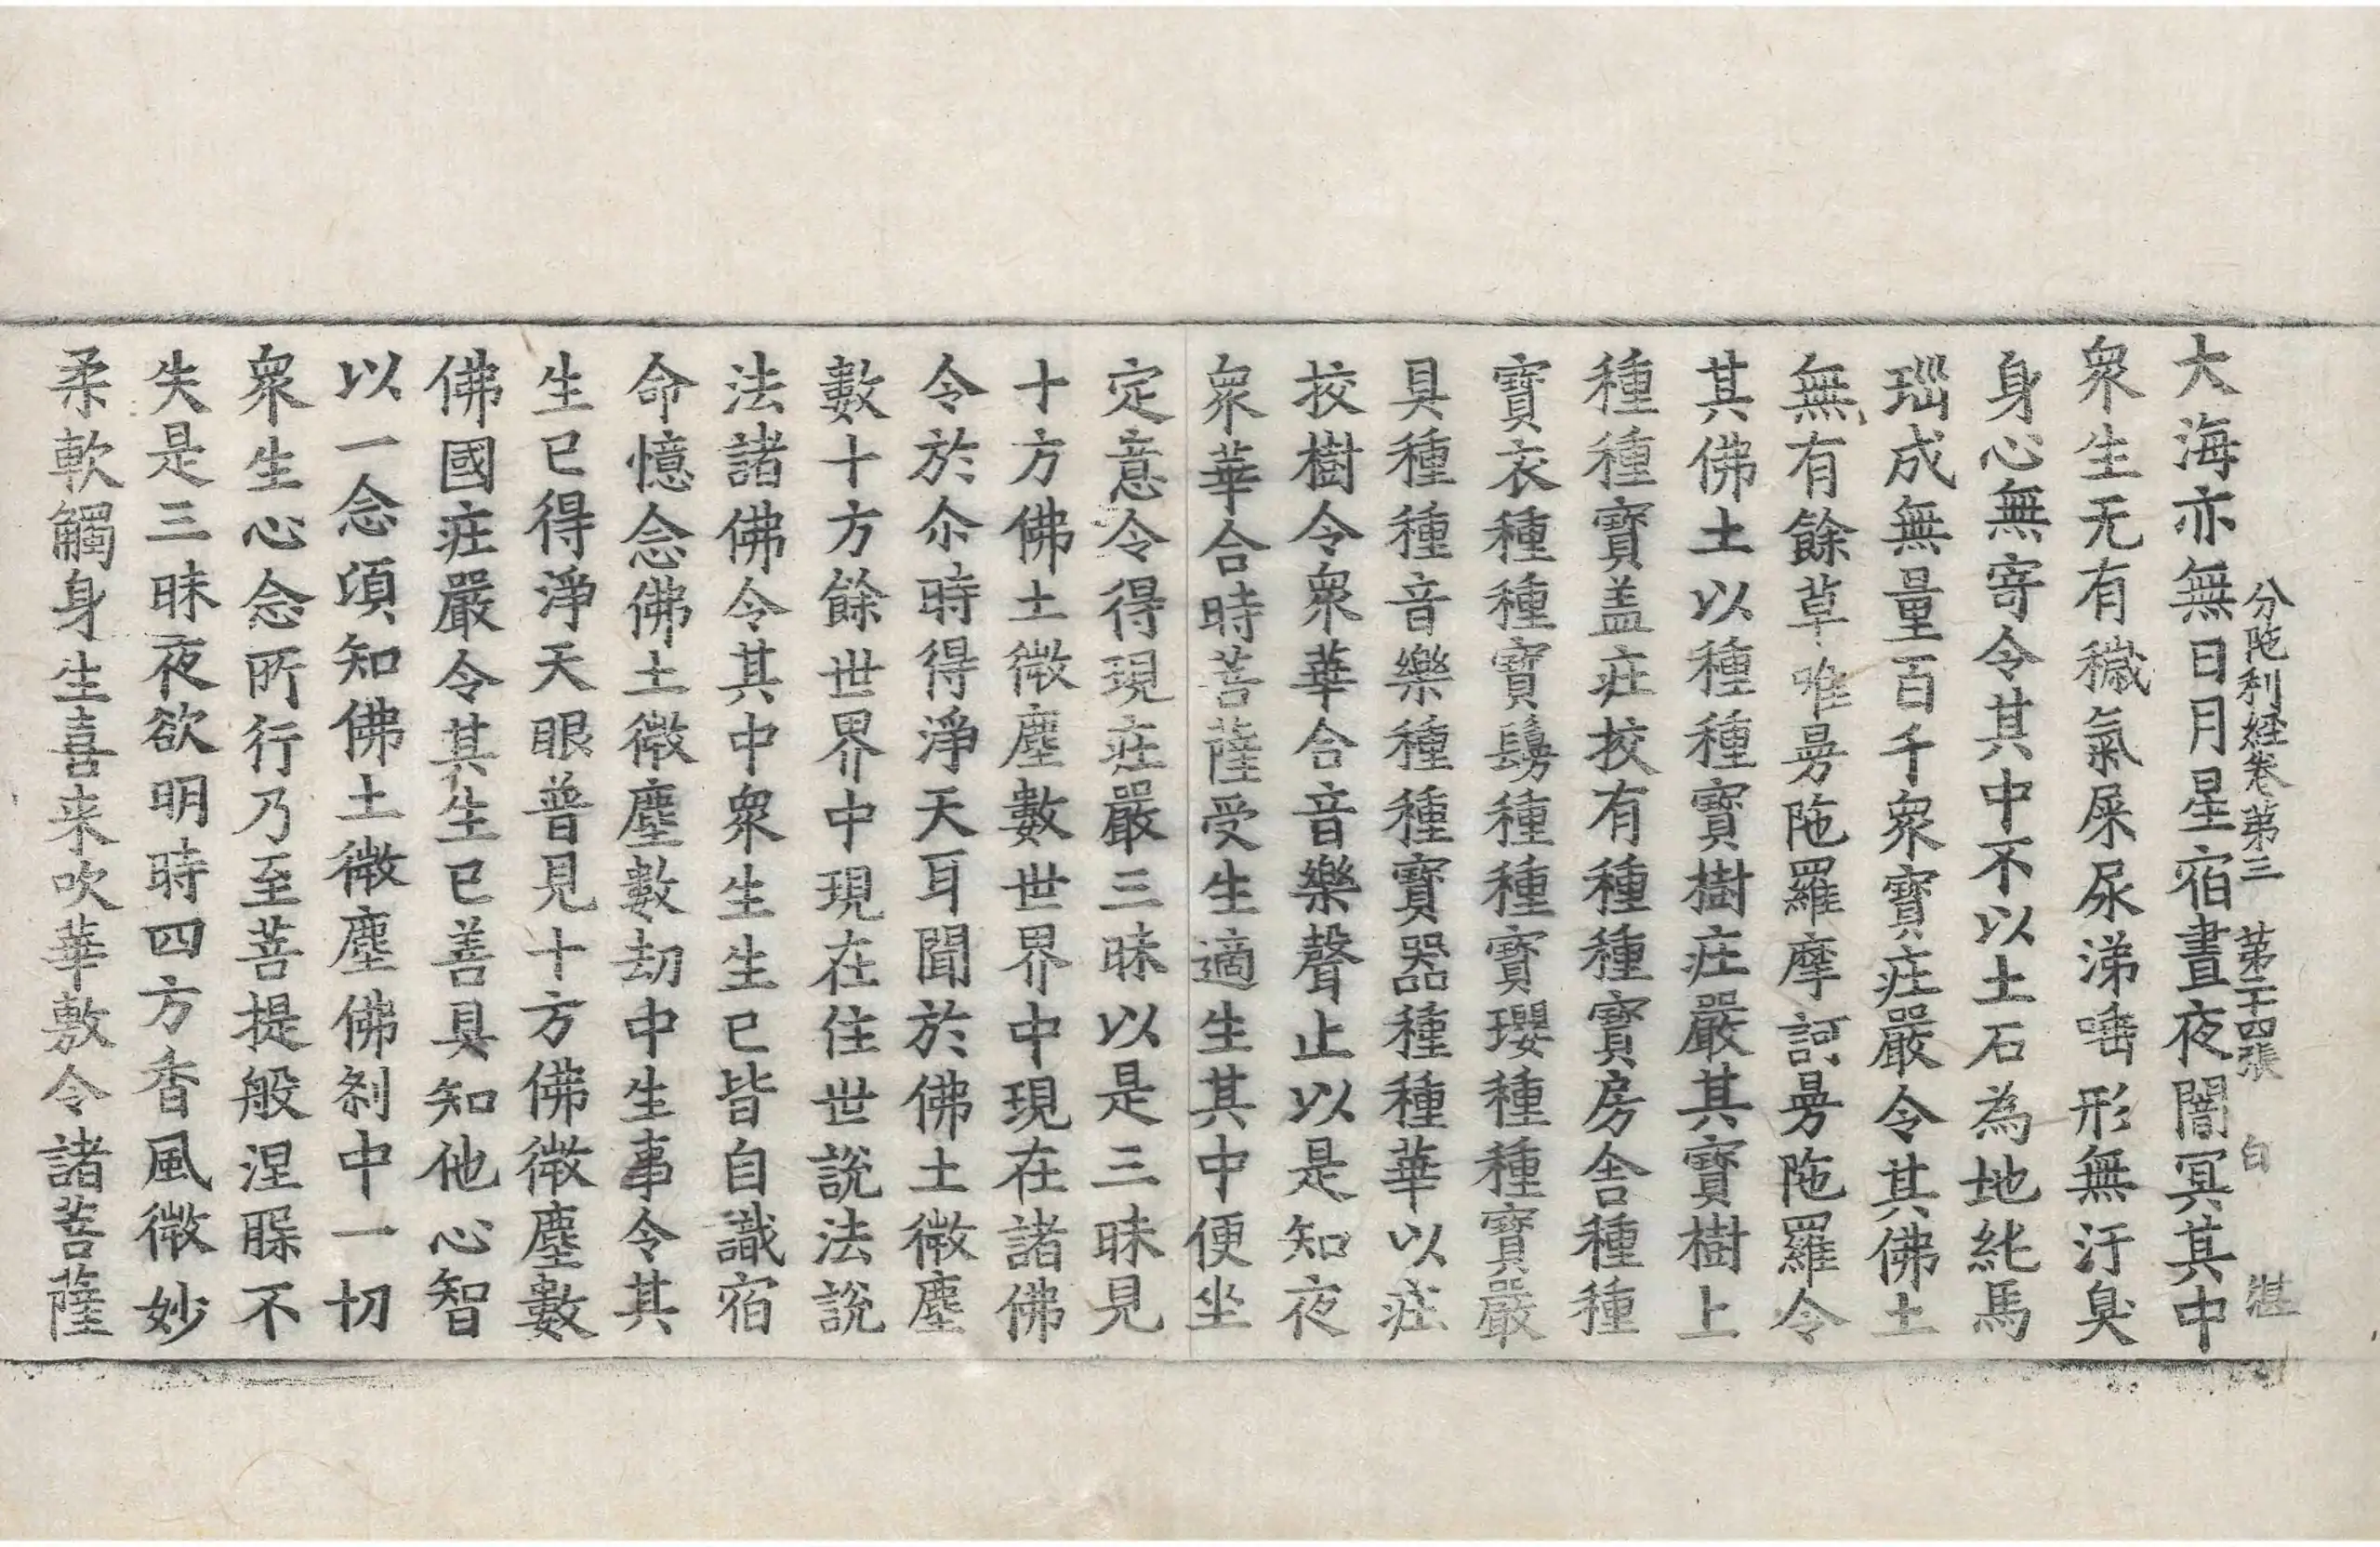 分陁利経卷第三 第二十四張 白 㴴
大海亦無日月星宿晝夜闇冥其中
衆生无有穢氣屎尿涕唾形無汙臭
身心無寄令其中不以土石為地純馬
瑙成無量百千衆寶疘嚴令其佛土
無有餘草唯㬅陁羅摩訶㬅陁羅令
其佛土以種種寶樹疘嚴其寶樹上
種種寶盖疘挍有種種寶房舍種種
寶衣種種寶鬘種種寶瓔種種寶嚴
具種種音樂種種寶器種種華以疘
挍樹令衆華合音樂聲止以是知夜
衆華合時菩薩受生適生其中便坐
定意令得現疘嚴三昧以是三昧見
十方佛土微塵數世界中現在諸佛
令於尒時得淨天耳聞於佛土微塵
數十方餘世界中現在住世說法說
法諸佛令其中衆生生已皆自識宿
命憶念佛土微塵數劫中生事令其
生已得淨天眼普見十方佛微塵數
佛國疘嚴令其生已善具知他心智
以一念頃知佛土微塵佛剎中一切
衆生心念所行乃至菩提般涅槃不
失是三昧夜欲明時四方香風微妙
柔軟觸身生喜来吹華敷令諸菩薩